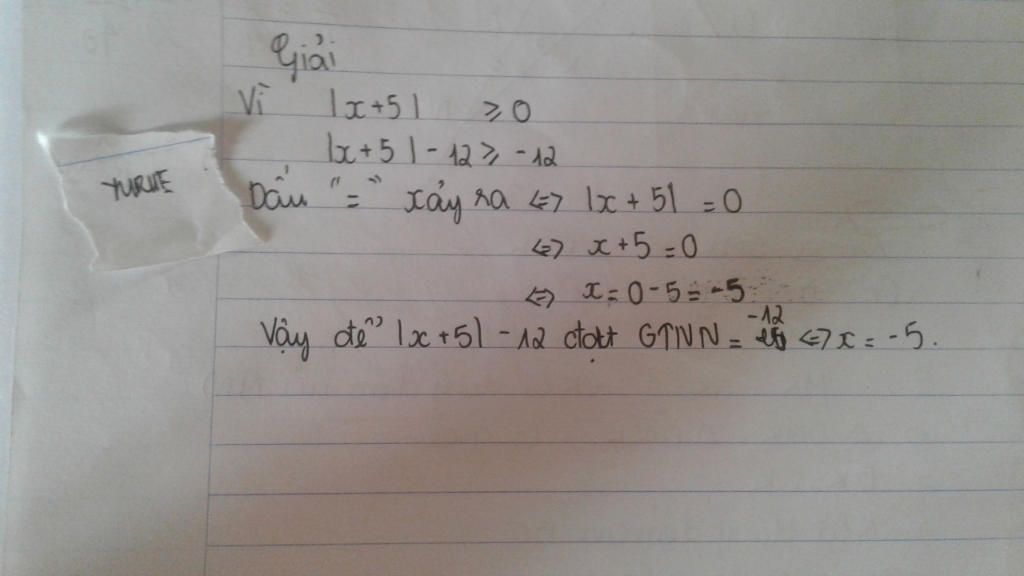 Giải
Vì |x+5| ⩾ 0
|x+5|-12 ⩾ -12
YURIE
Dấu "=" xảy ra <=> |x+5| = 0
<=> x+5=0
<=> x=0-5=-5
Vậy để |x+5| -12 đạt GTNN = -12 <=> x = -5.